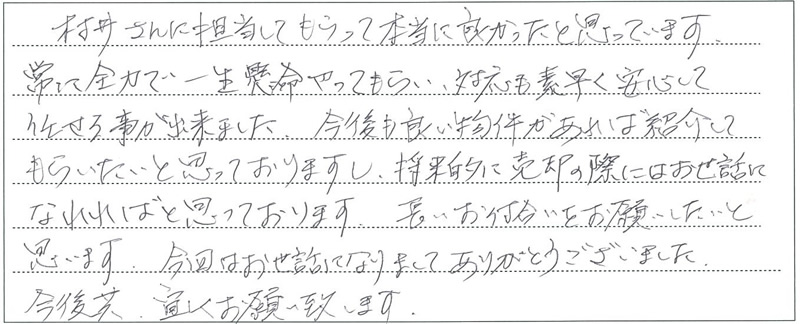 村井さんに担当してもらって本当に良かったと思っています.
常に全力で一生懸命やってもらい、対応も素早く安心して
任せる事が出来ました. 今後も良い物件があれば紹介して
もらいたいと思っておりますし、将来的に売却の際にはお世話に
なれればと思っております 長いお付合いをお願いしたいと
思います. 今回はお世話になりましてありがとうございました.
今後共、宜しくお願い致します.